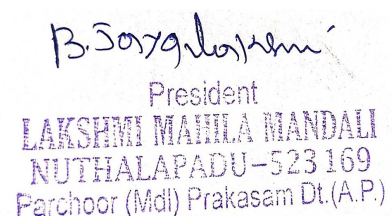 B. Jayalakshmi
President
LAKSHMI MAHILA MANDALI
NUTHALAPADU-523169
Parchoor (Mdl) Prakasam Dt.(A.P.)